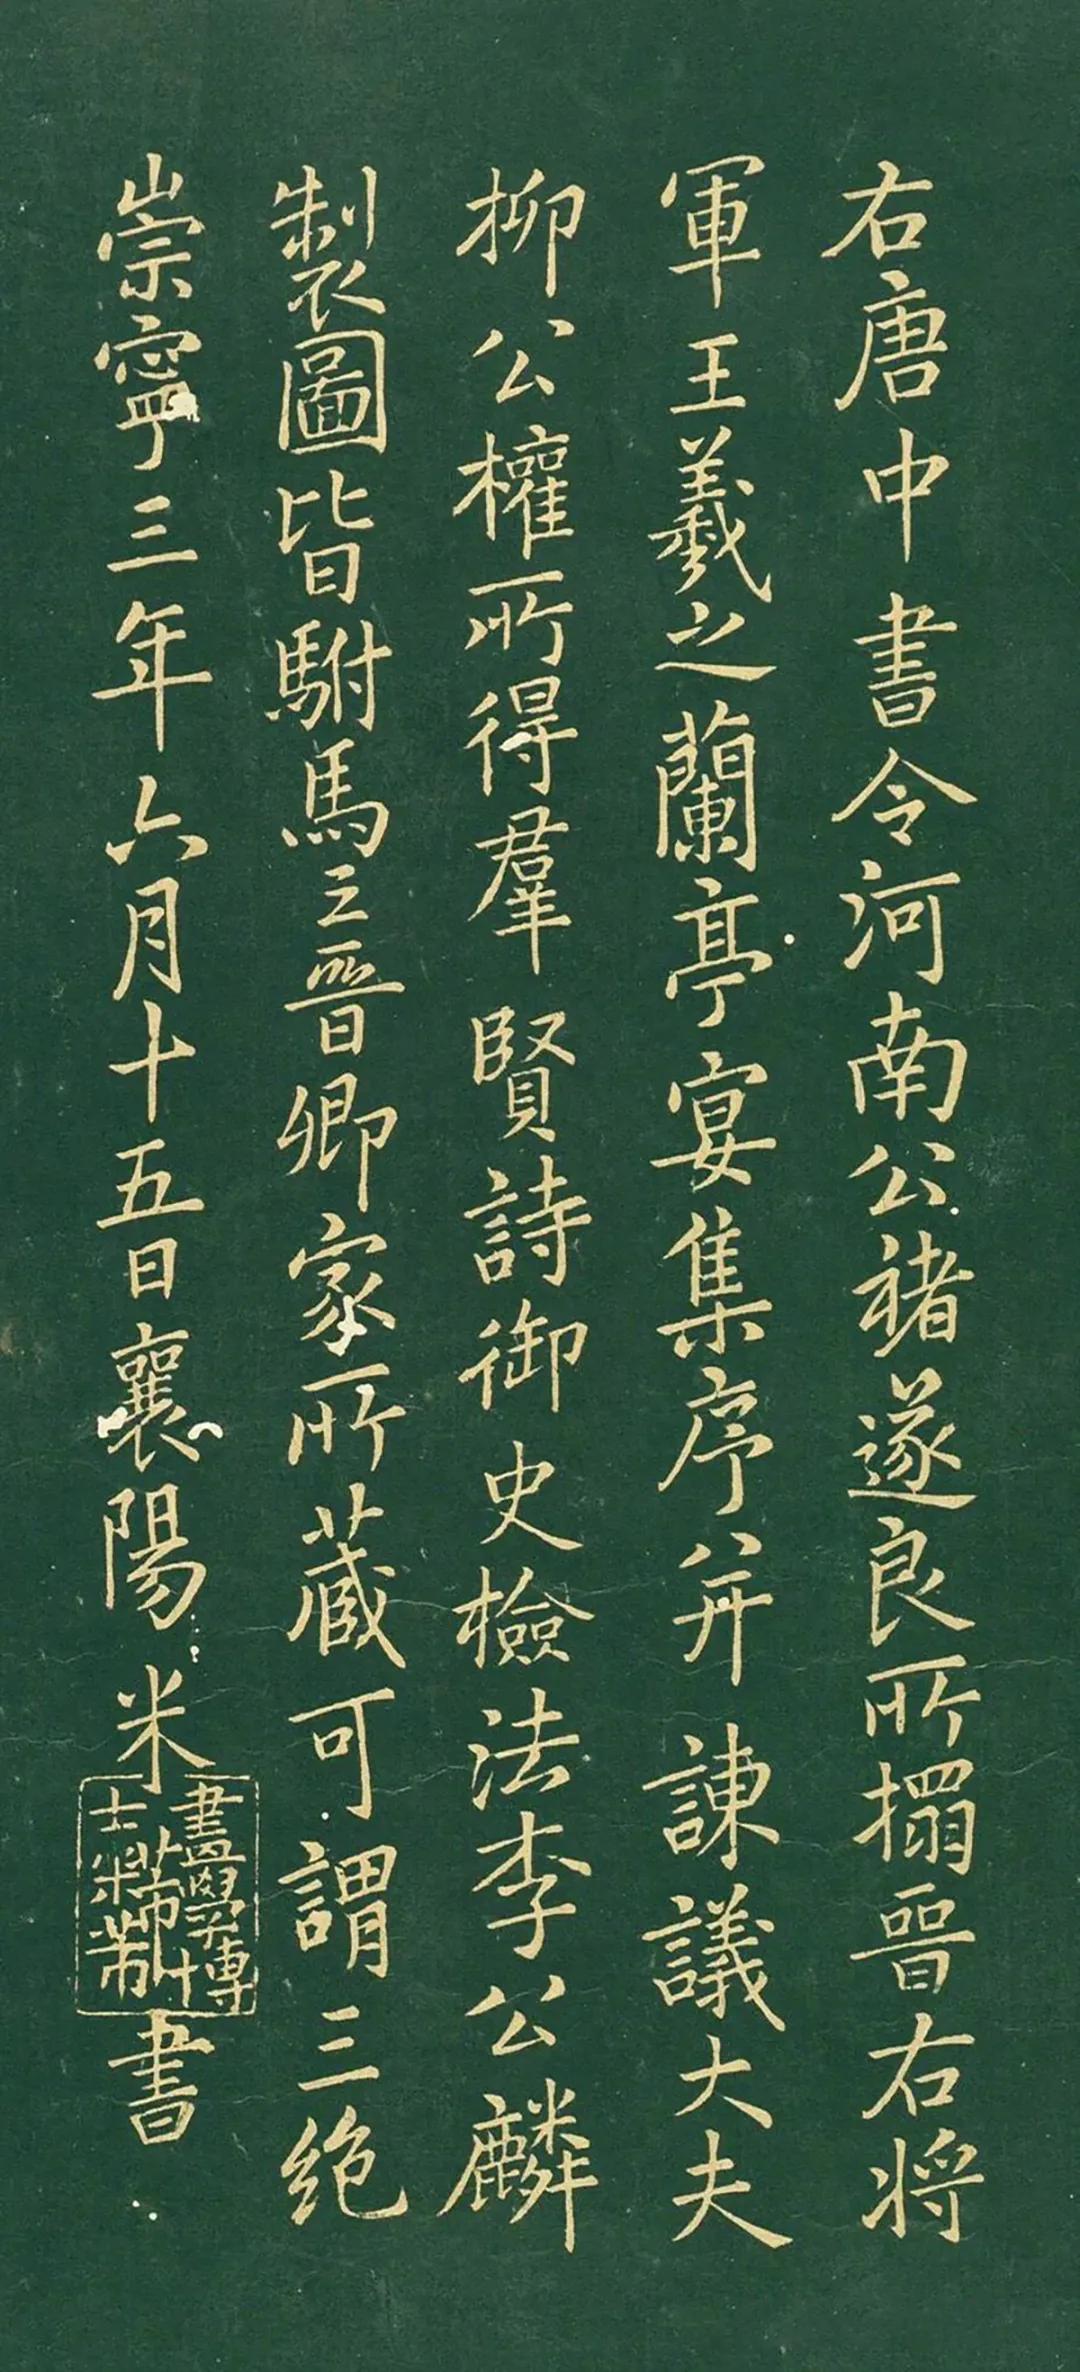 右唐中書令河南公褚遂良所搨晉右將
軍王羲之蘭亭宴集序并諫議大夫
柳公權所得羣賢詩御史檢法李公麟
製圖皆駙馬王晉卿家所藏可謂三絶
崇寧三年六月十五日襄陽米芾書
書畫學博士米芾